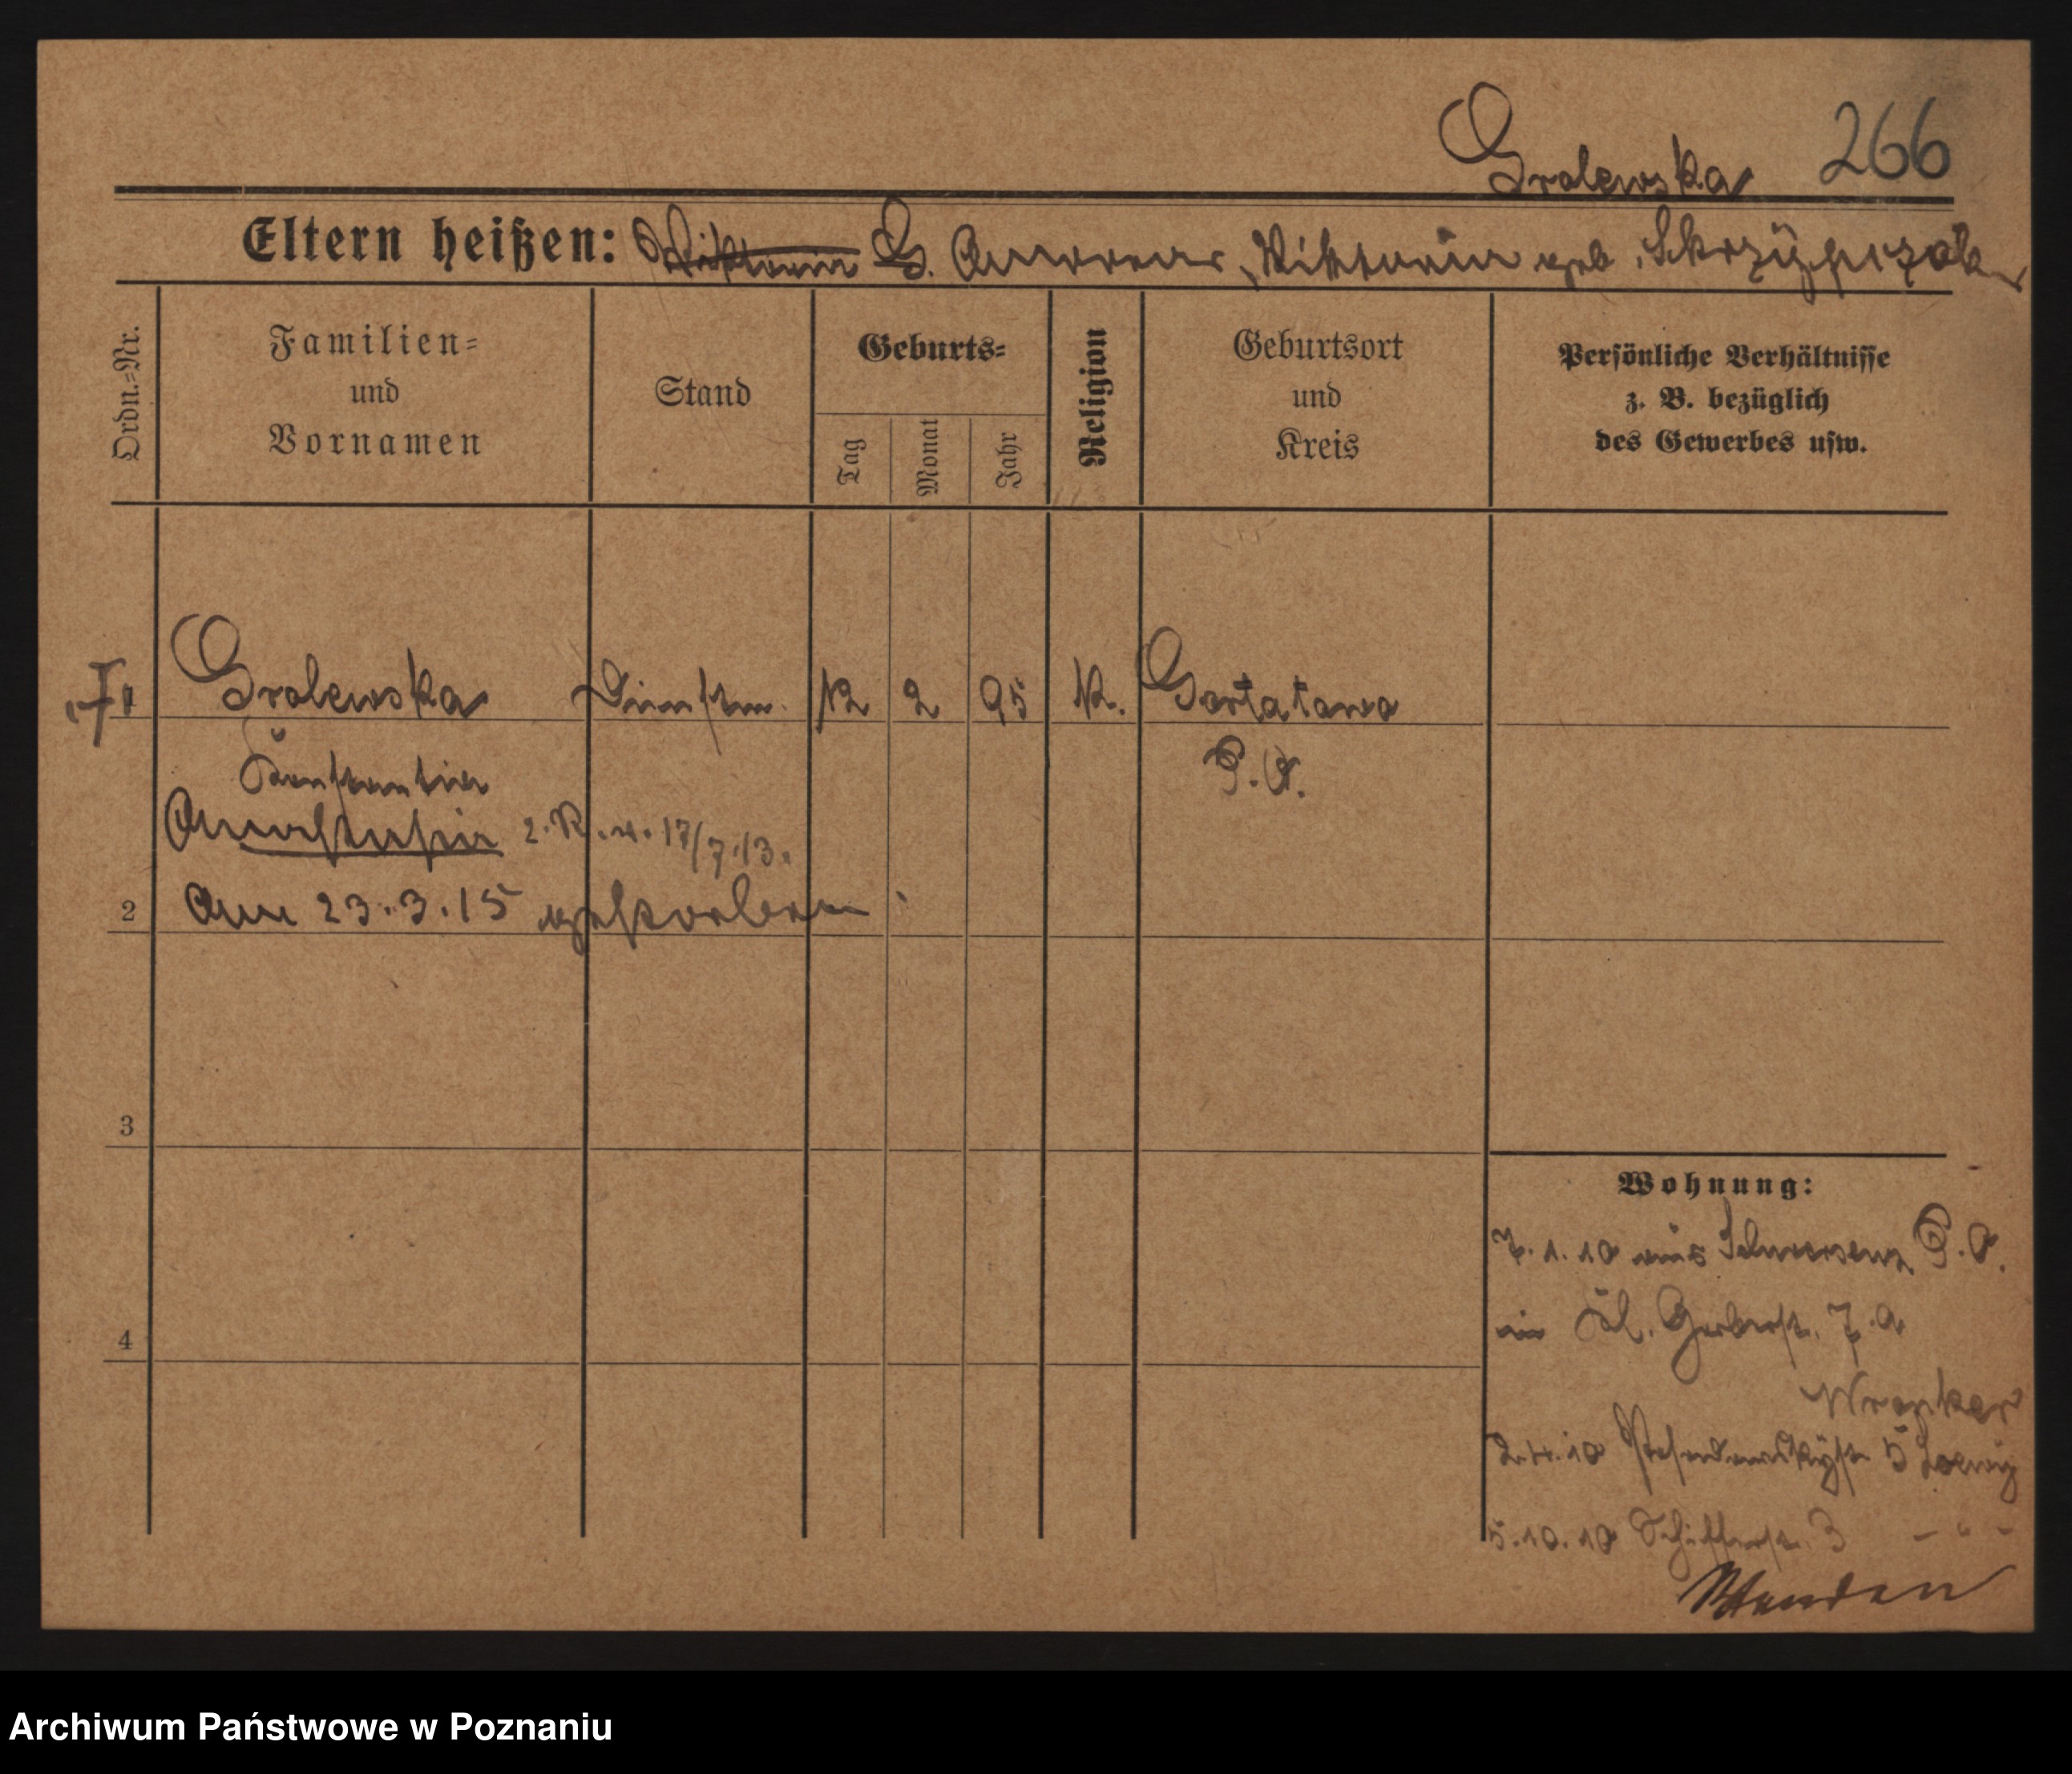 Grolewska 266
Eltern heißen: Viktoria G. Andreas, Viktoria geb. Skrzypczak
Ordn.-Nr.
Familien-
und
Vornamen
Stand
Geburts-
Tag
Monat
Jahr
Religion
Geburtsort
und
Kreis
Persönliche Verhältnisse
z. B. bezüglich
des Gewerbes usw.
1 Grolewska Dienstm. 12 2 95 K. Gortatowo
Konstantia P. O.
Anastasia 2. K. v. 17/7.13.
2 am 23.3.15 gestorben
3
4
Wohnung:
7.1.10 aus Schwersenz P. O.
in Kl. Gerberstr. 7.a
Wronker
2.4.10 5 Loewy
5.10.10 Schifferstr. 3 - " -
Archiwum Państwowe w Poznaniu